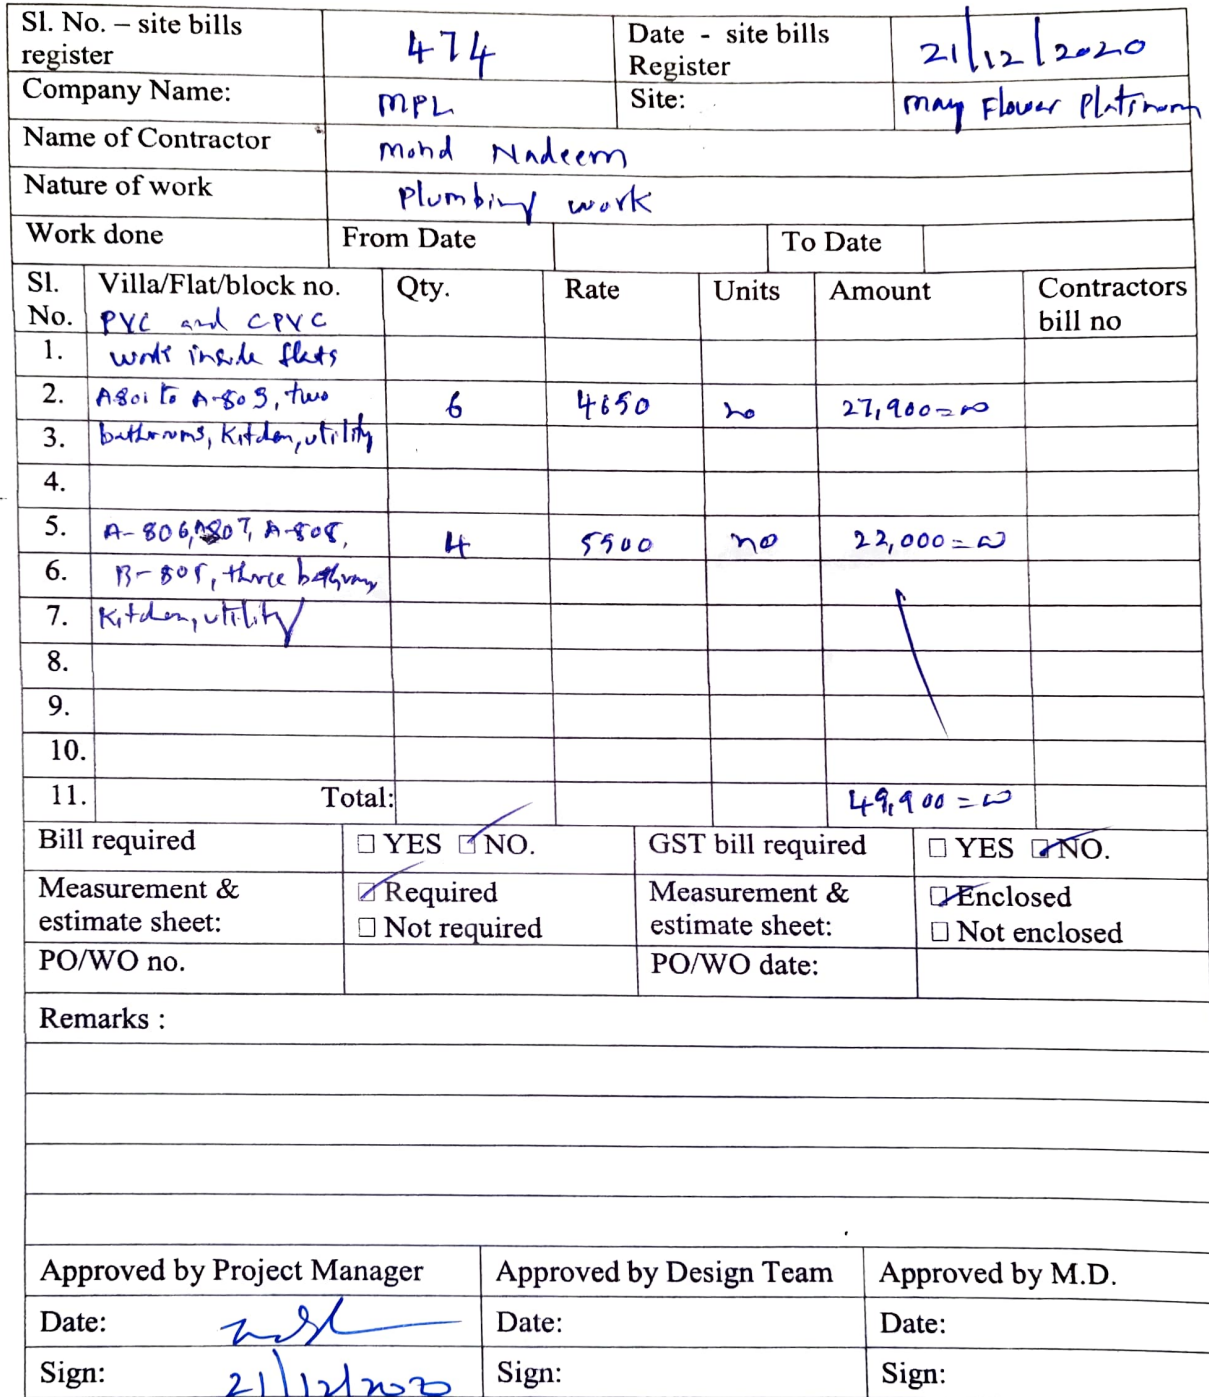 Sl. No. – site bills register 474 Date - site bills Register 21/12/2020
Company Name: MPL Site: May Flower Platinum
Name of Contractor Mohd Nadeem
Nature of work Plumbing work
Work done From Date To Date
Sl. No. Villa/Flat/block no. Qty. Rate Units Amount Contractors bill no
PVC and CPVC
1. work inside flats
2. A801 to A-805, two 6 4650 no 27,900=00
3. bathrooms, Kitchen, utility
4.
5. A-806, A807, A-808, 4 5500 no 22,000=00
6. B-805, three bathrooms
7. Kitchen, utility
8.
9.
10.
11. Total: 49,900=00
Bill required ☐ YES ☑ NO. GST bill required ☐ YES ☑ NO.
Measurement & estimate sheet: ☑ Required ☐ Not required Measurement & estimate sheet: ☑ Enclosed ☐ Not enclosed
PO/WO no. PO/WO date:
Remarks :
Approved by Project Manager Approved by Design Team Approved by M.D.
Date: Date: Date:
Sign: 21/12/2020 Sign: Sign: